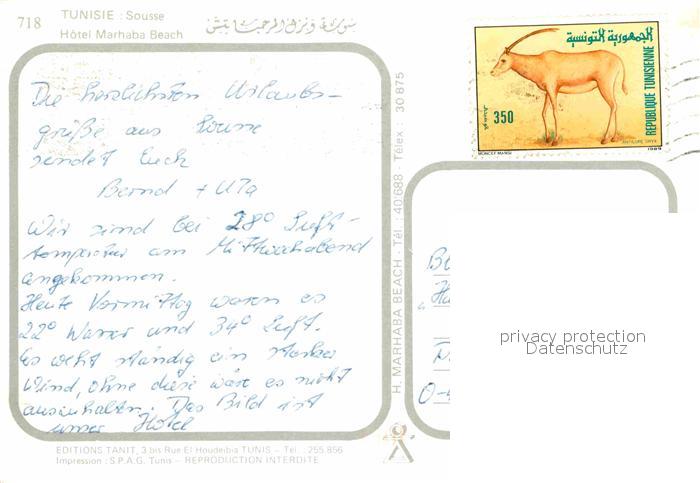 718
TUNISIE : Sousse
Hôtel Marhaba Beach
Die herzlichsten Urlaubs-
grüße aus Sousse
sendet Euch
Bernd + Uta
Wir sind bei 28° Luft-
temperatur am Mittwochabend
angekommen.
Heute Vormittag waren es
22° Wasser und 34° Luft.
Es weht ständig ein starker
Wind, ohne diese wäre es nicht
auszuhalten. Das Bild ist
unser Hotel
EDITIONS TANIT, 3 bis Rue El Houdeibia TUNIS – Tél. : 255.856
Impression : S.P.A.G. Tunis – REPRODUCTION INTERDITE
H. MARHABA BEACH - Tél. : 40'688 - Télex 30 875
الجمهورية التونسية
REPUBLIQUE TUNISIENNE
350
MONCEF MANSI
1989
privacy protection
Datenschutz